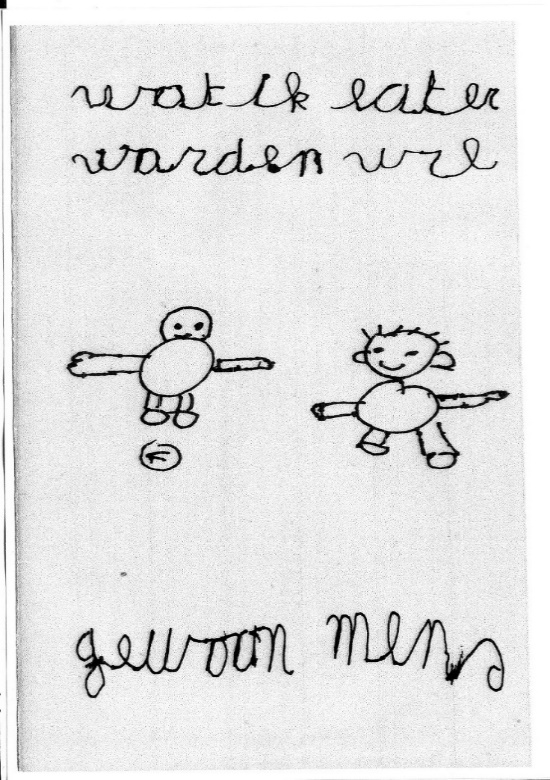 wat ik later
warden wil
gewoon mens